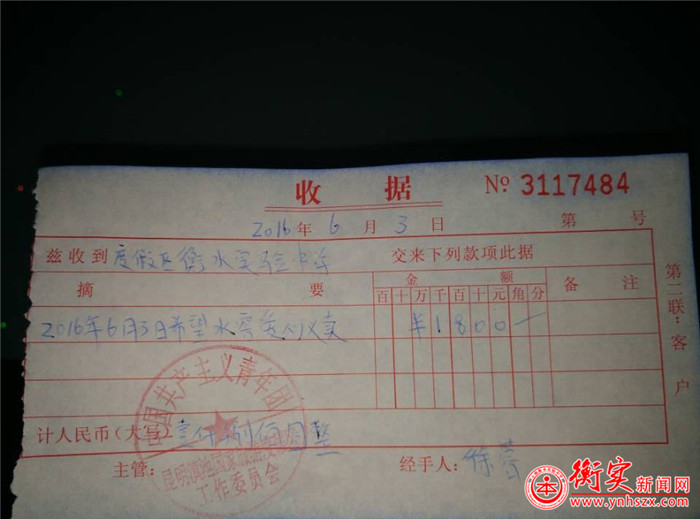 收 据 № 3117484
2016 年 6 月 3 日 第 号
兹收到 度假区衡水实验中学 交来下列款项此据
摘 要 金 额 备 注
百 十 万 千 百 十 元 角 分
2016年6月3日希望水窖爱心义卖 ¥1800—
计人民币(大写) 壹仟捌佰圆整
主管: 经手人: 徐
第二联:客户
中国共产主义青年团
工作委员会
衡实新闻网
www.ynhszx.com